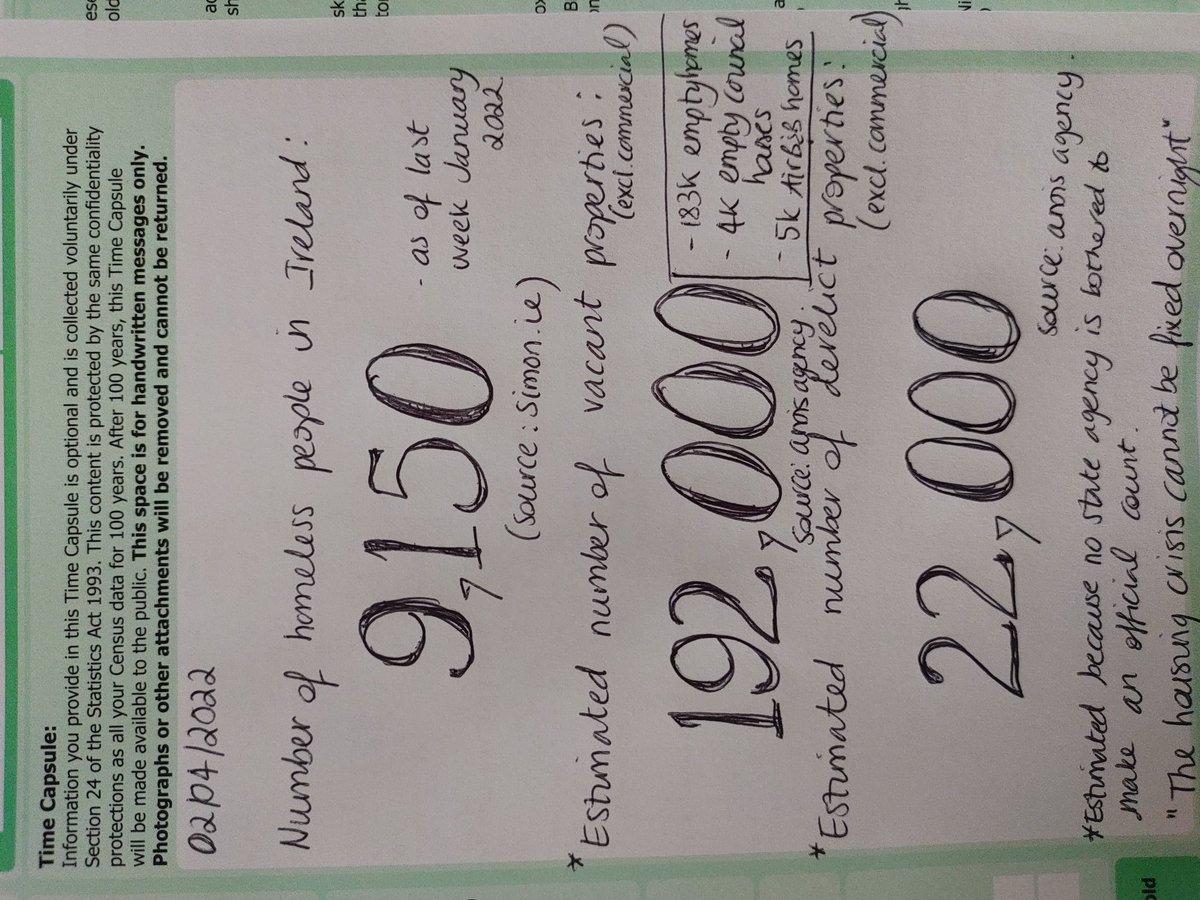 Time Capsule:
Information you provide in this Time Capsule is optional and is collected voluntarily under
Section 24 of the Statistics Act 1993. This content is protected by the same confidentiality
protections as all your Census data for 100 years. After 100 years, this Time Capsule
will be made available to the public. This space is for handwritten messages only.
Photographs or other attachments will be removed and cannot be returned.
02/04/2022
Number of homeless people in Ireland:
9,150
- as of last
week January
2022.
(Source: Simon.ie)
*Estimated number of vacant properties:
(excl. commercial)
192,000
- 183K empty homes
- 4K empty council
houses
- 5K AirB&B homes
Source: anois agency
*Estimated number of derelict properties:
(excl. commercial)
22,000
Source: anois agency.
*Estimated because no state agency is bothered to
make an official count.
"The housing crisis cannot be fixed overnight"